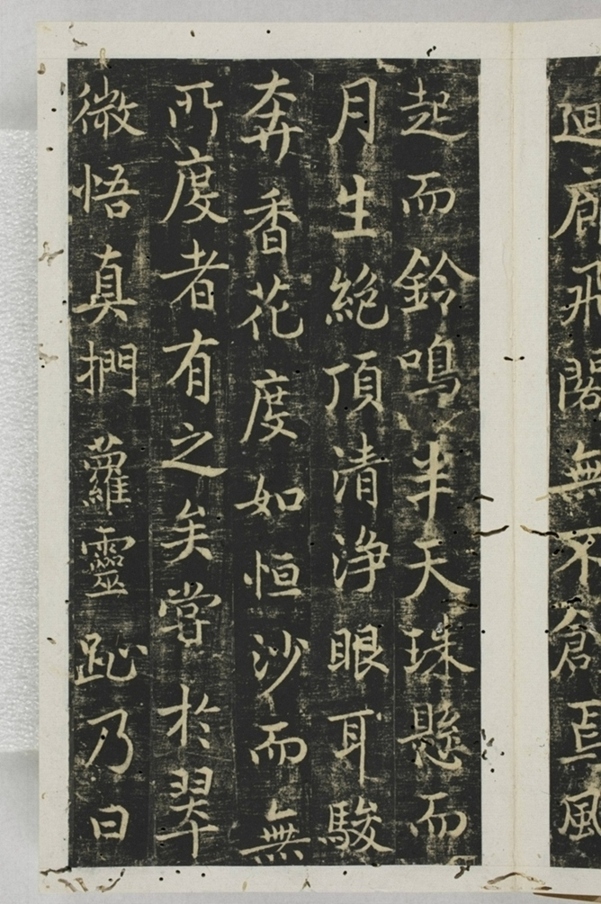 迴廊飛閣無不創焉風
起而鈴鳴半天珠懸而
月生絶頂清浄眼耳駿
奔香花度如恒沙而無
所度者有之矣嘗於翠
微悟真捫蘿靈趾乃曰